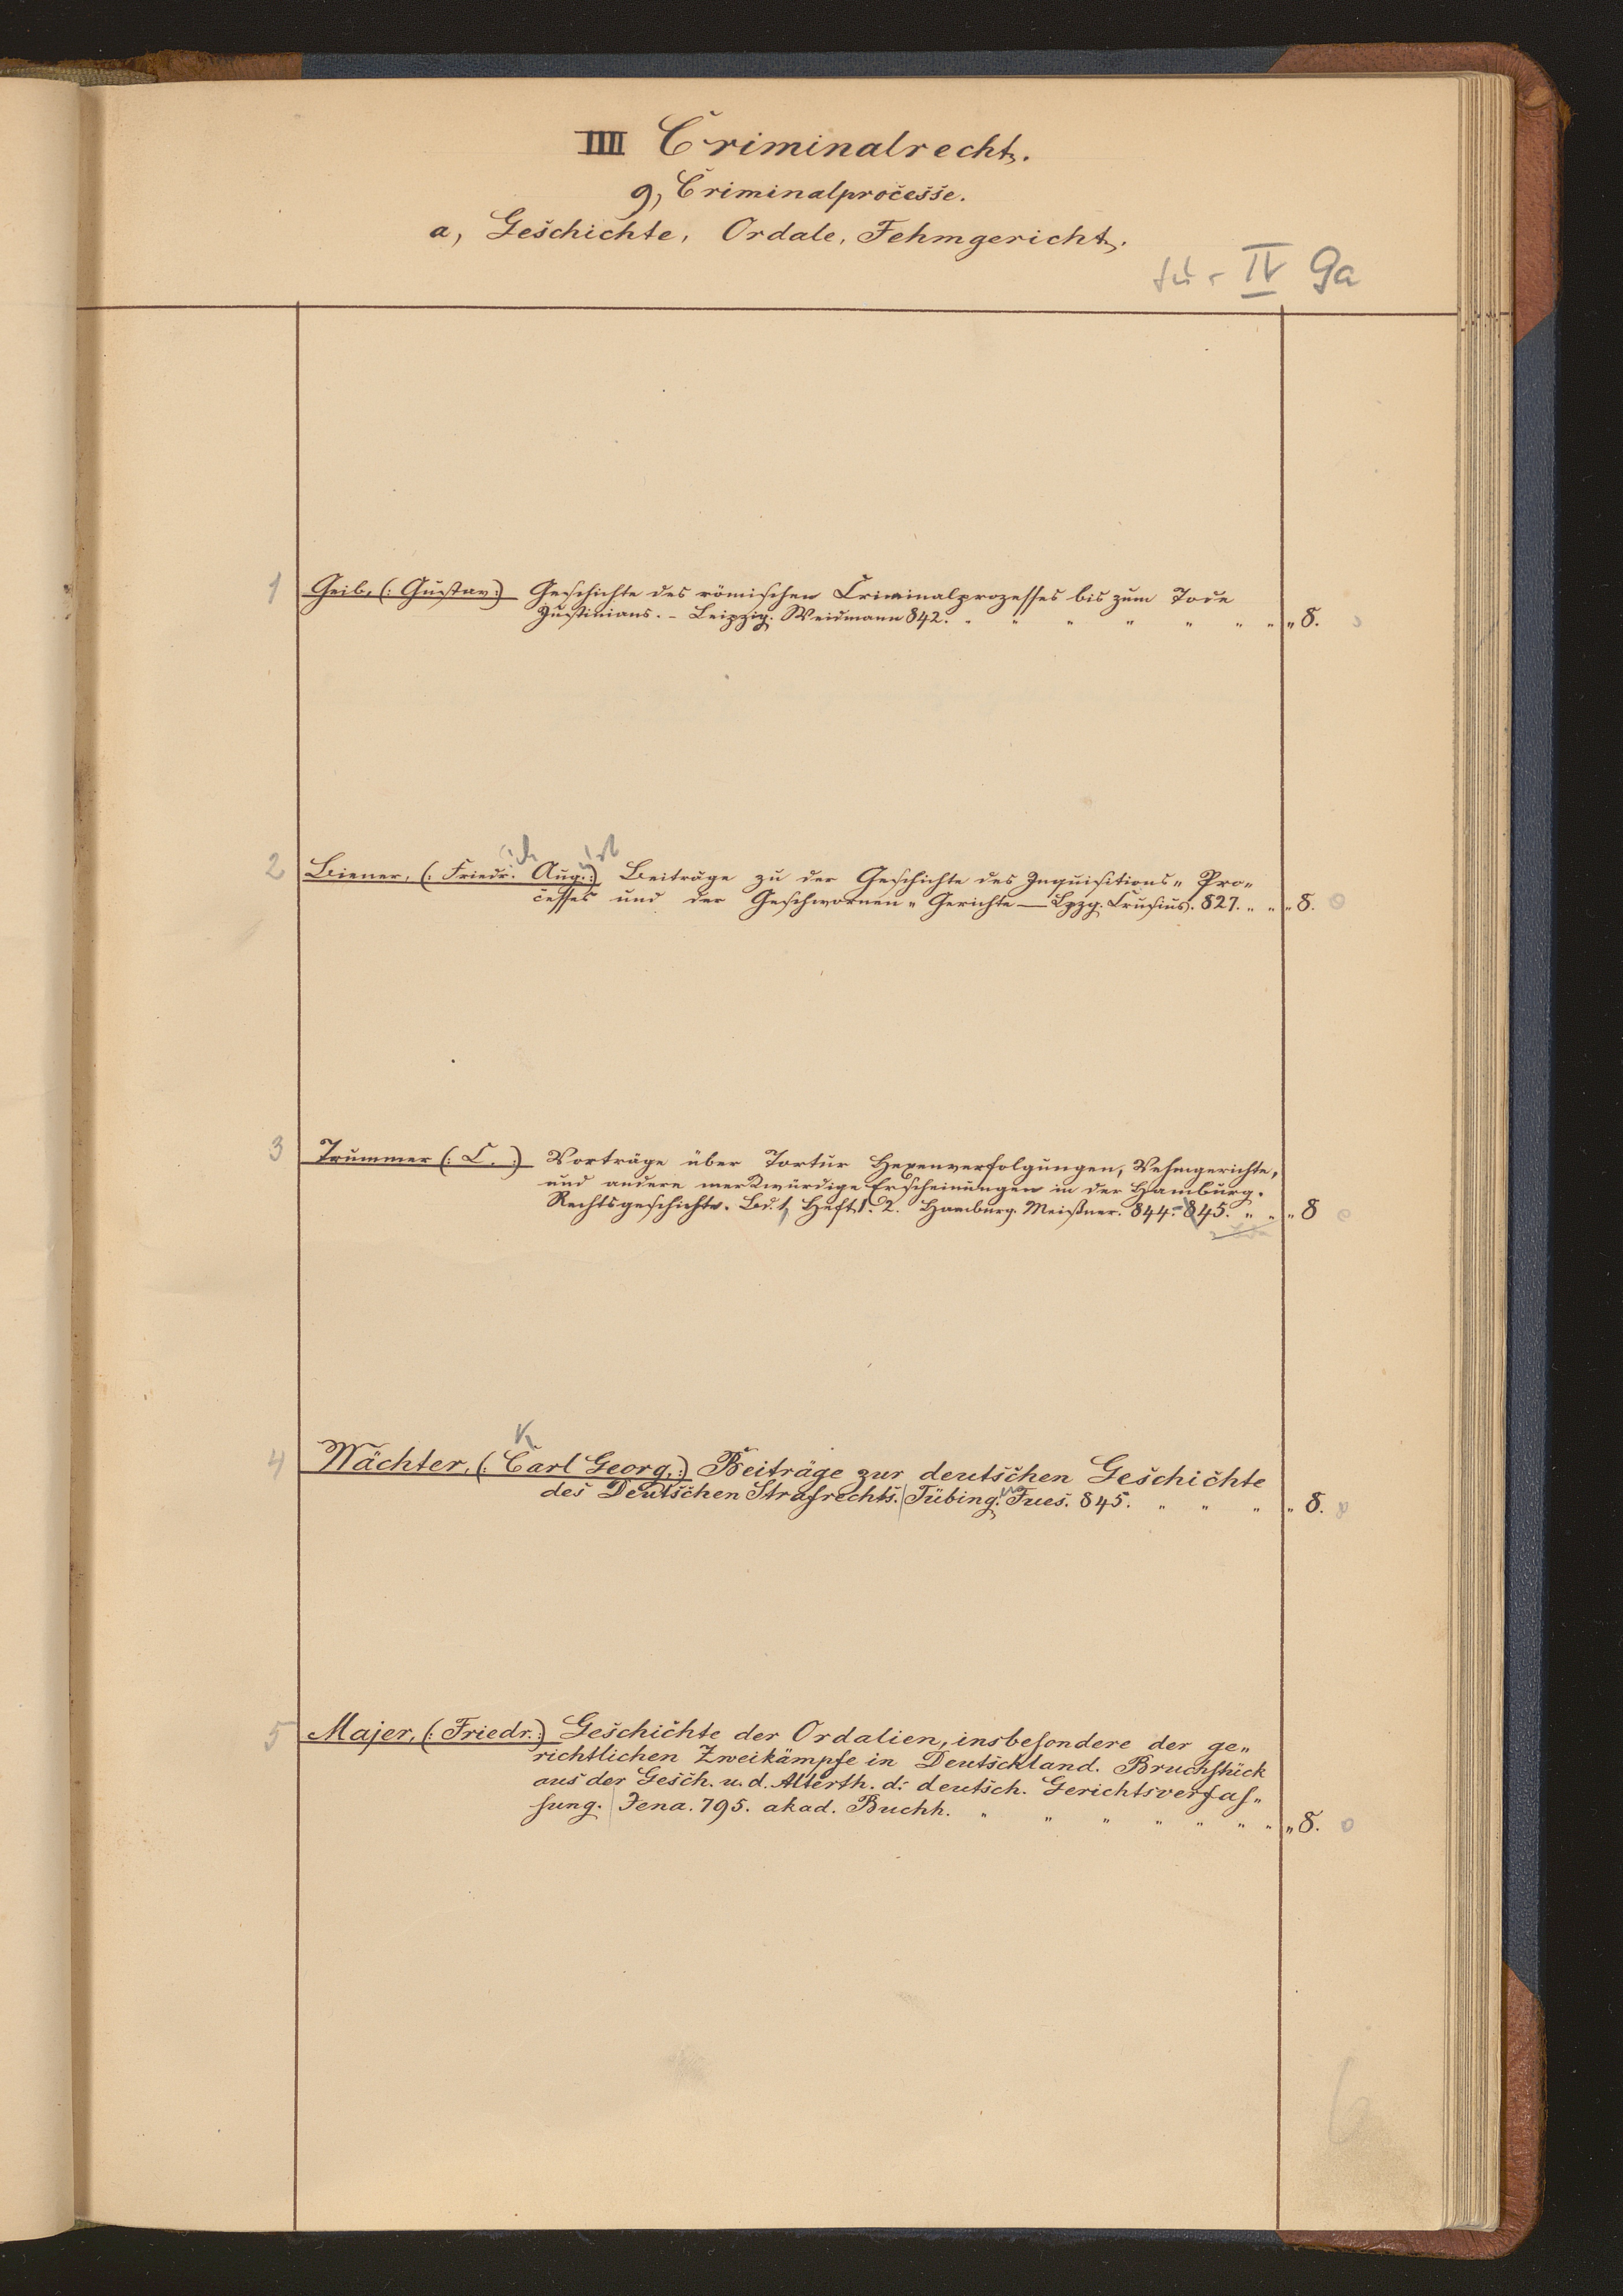 IIII Criminalrecht.
9, Criminalprocesse.
a, Geschichte, Ordale, Fehmgericht.
IV 9a
1 Geib, (: Gustav :) Geschichte des römischen Criminalprozesses bis zum Tode
Justinians. - Leipzig. Weidmann 842. " " " " " " " " 8.
2 Biener, (: Friedr. Aug. :) Beiträge zu der Geschichte des Inquisitions " Pro "
ich ust
cesses und der Geschwornen " Gerichte — Lpzg. Crusius. 827. " " " 8. o
3 Trummer (: C. :) Vorträge über Tortur Hexenverfolgungen, Vehmgerichte,
und andere merkwürdige Erscheinungen in der Hamburg.
Rechtsgeschichte. Bd. 1, Heft 1. 2. Hamburg. Meißner. 844.- 845. " " " 8 o
K
4 Wächter, (: Carl Georg, :) Beiträge zur deutschen Geschichte
des Deutschen Strafrechts. Tübing. Fues. 845. " " " " 8.
5 Majer, (: Friedr. :) Geschichte der Ordalien, insbesondere der ge "
richtlichen Zweikämpfe in Deutschland. Bruchstück
aus der Gesch. u. d. Alterth. d. deutsch. Gerichtsverfas "
sung. Jena. 795. akad. Buchh. " " " " " " " " 8. o
6